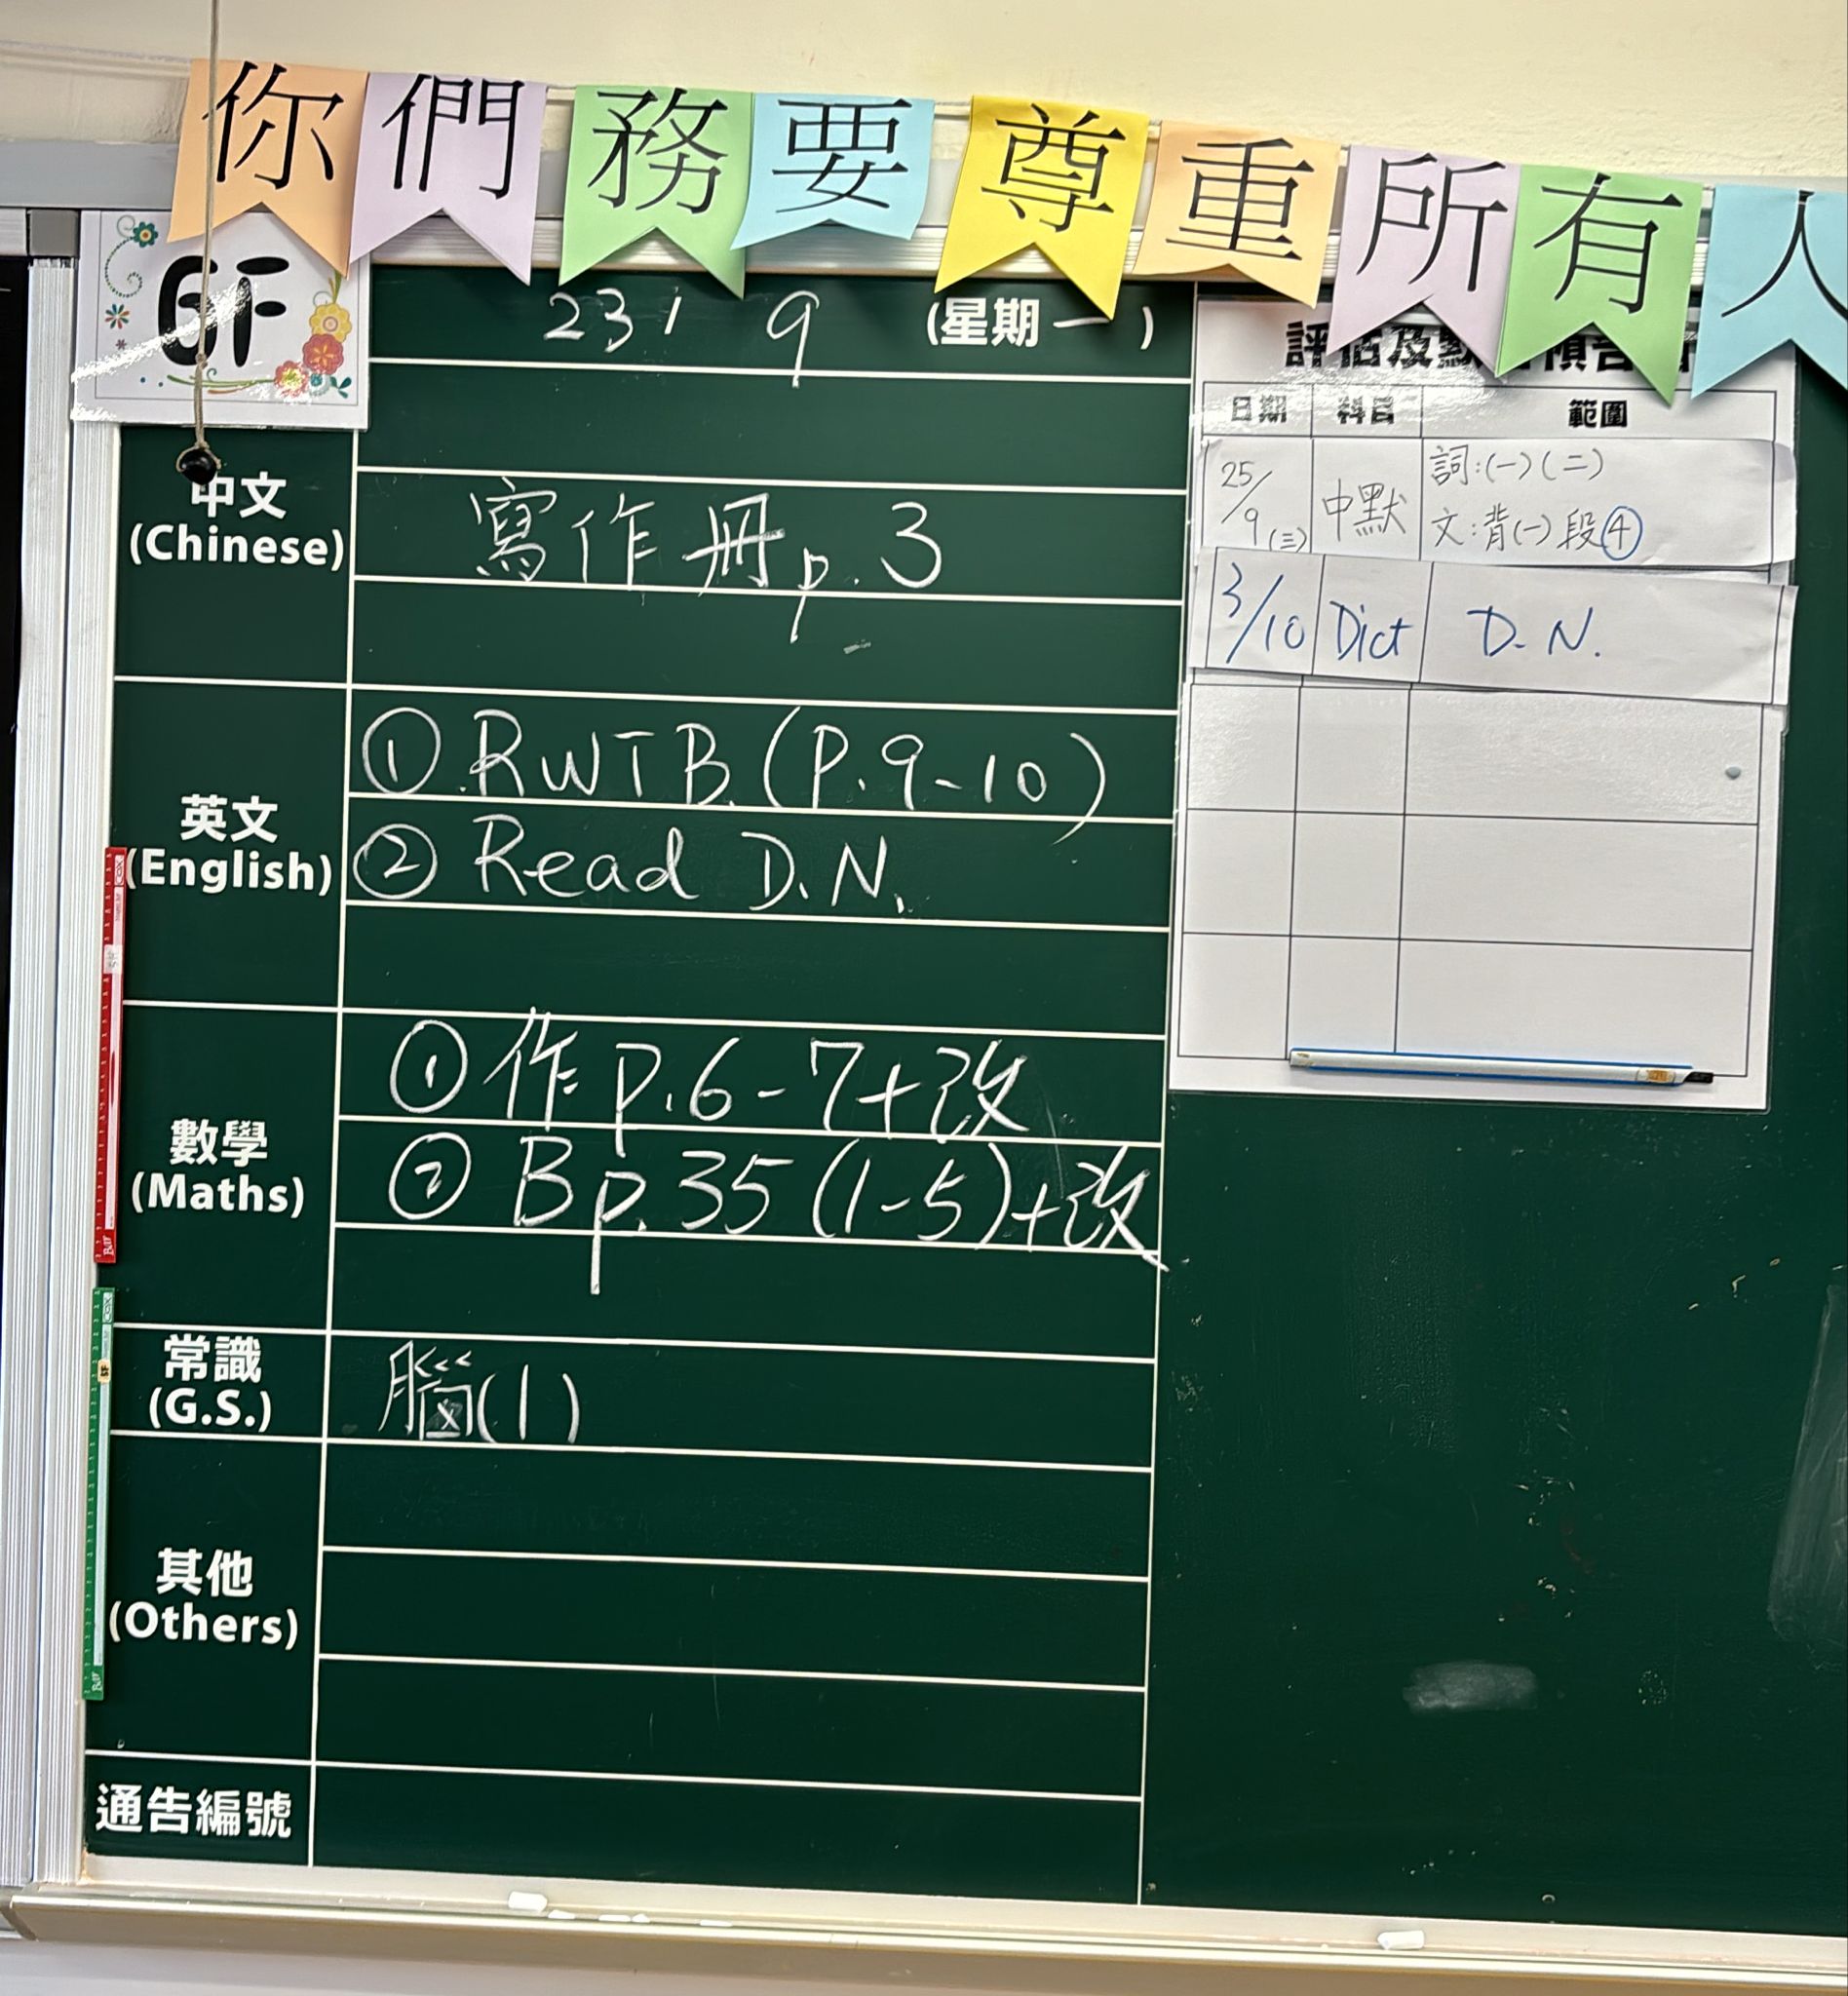 你們務要尊重所有人
6F
23 / 9 (星期一)
中文
(Chinese)
寫作冊p. 3
英文
(English)
① RWTB (P.9-10)
② Read D.N.
數學
(Maths)
① 作 p.6-7+改
② B p.35 (1-5)+改
常識
(G.S.)
腦(1)
其他
(Others)
通告編號
評估及默
日期 科目 範圍
25/9(三) 中默 詞:(一)(二)
文:背(一)段④
3/10 Dict D.N.